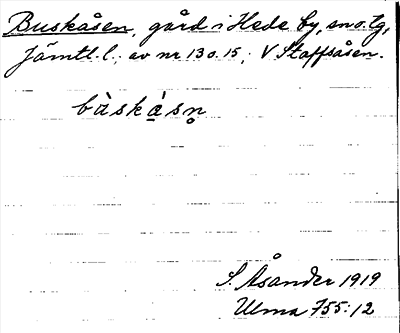 Buskåsen, gård i Hede by, sn o. tg,
Jämtl. l.; av nr 13 o. 15; V Staffsåsen.
bùskåsn̥
S. Åsander 1919
Ulma 755:12